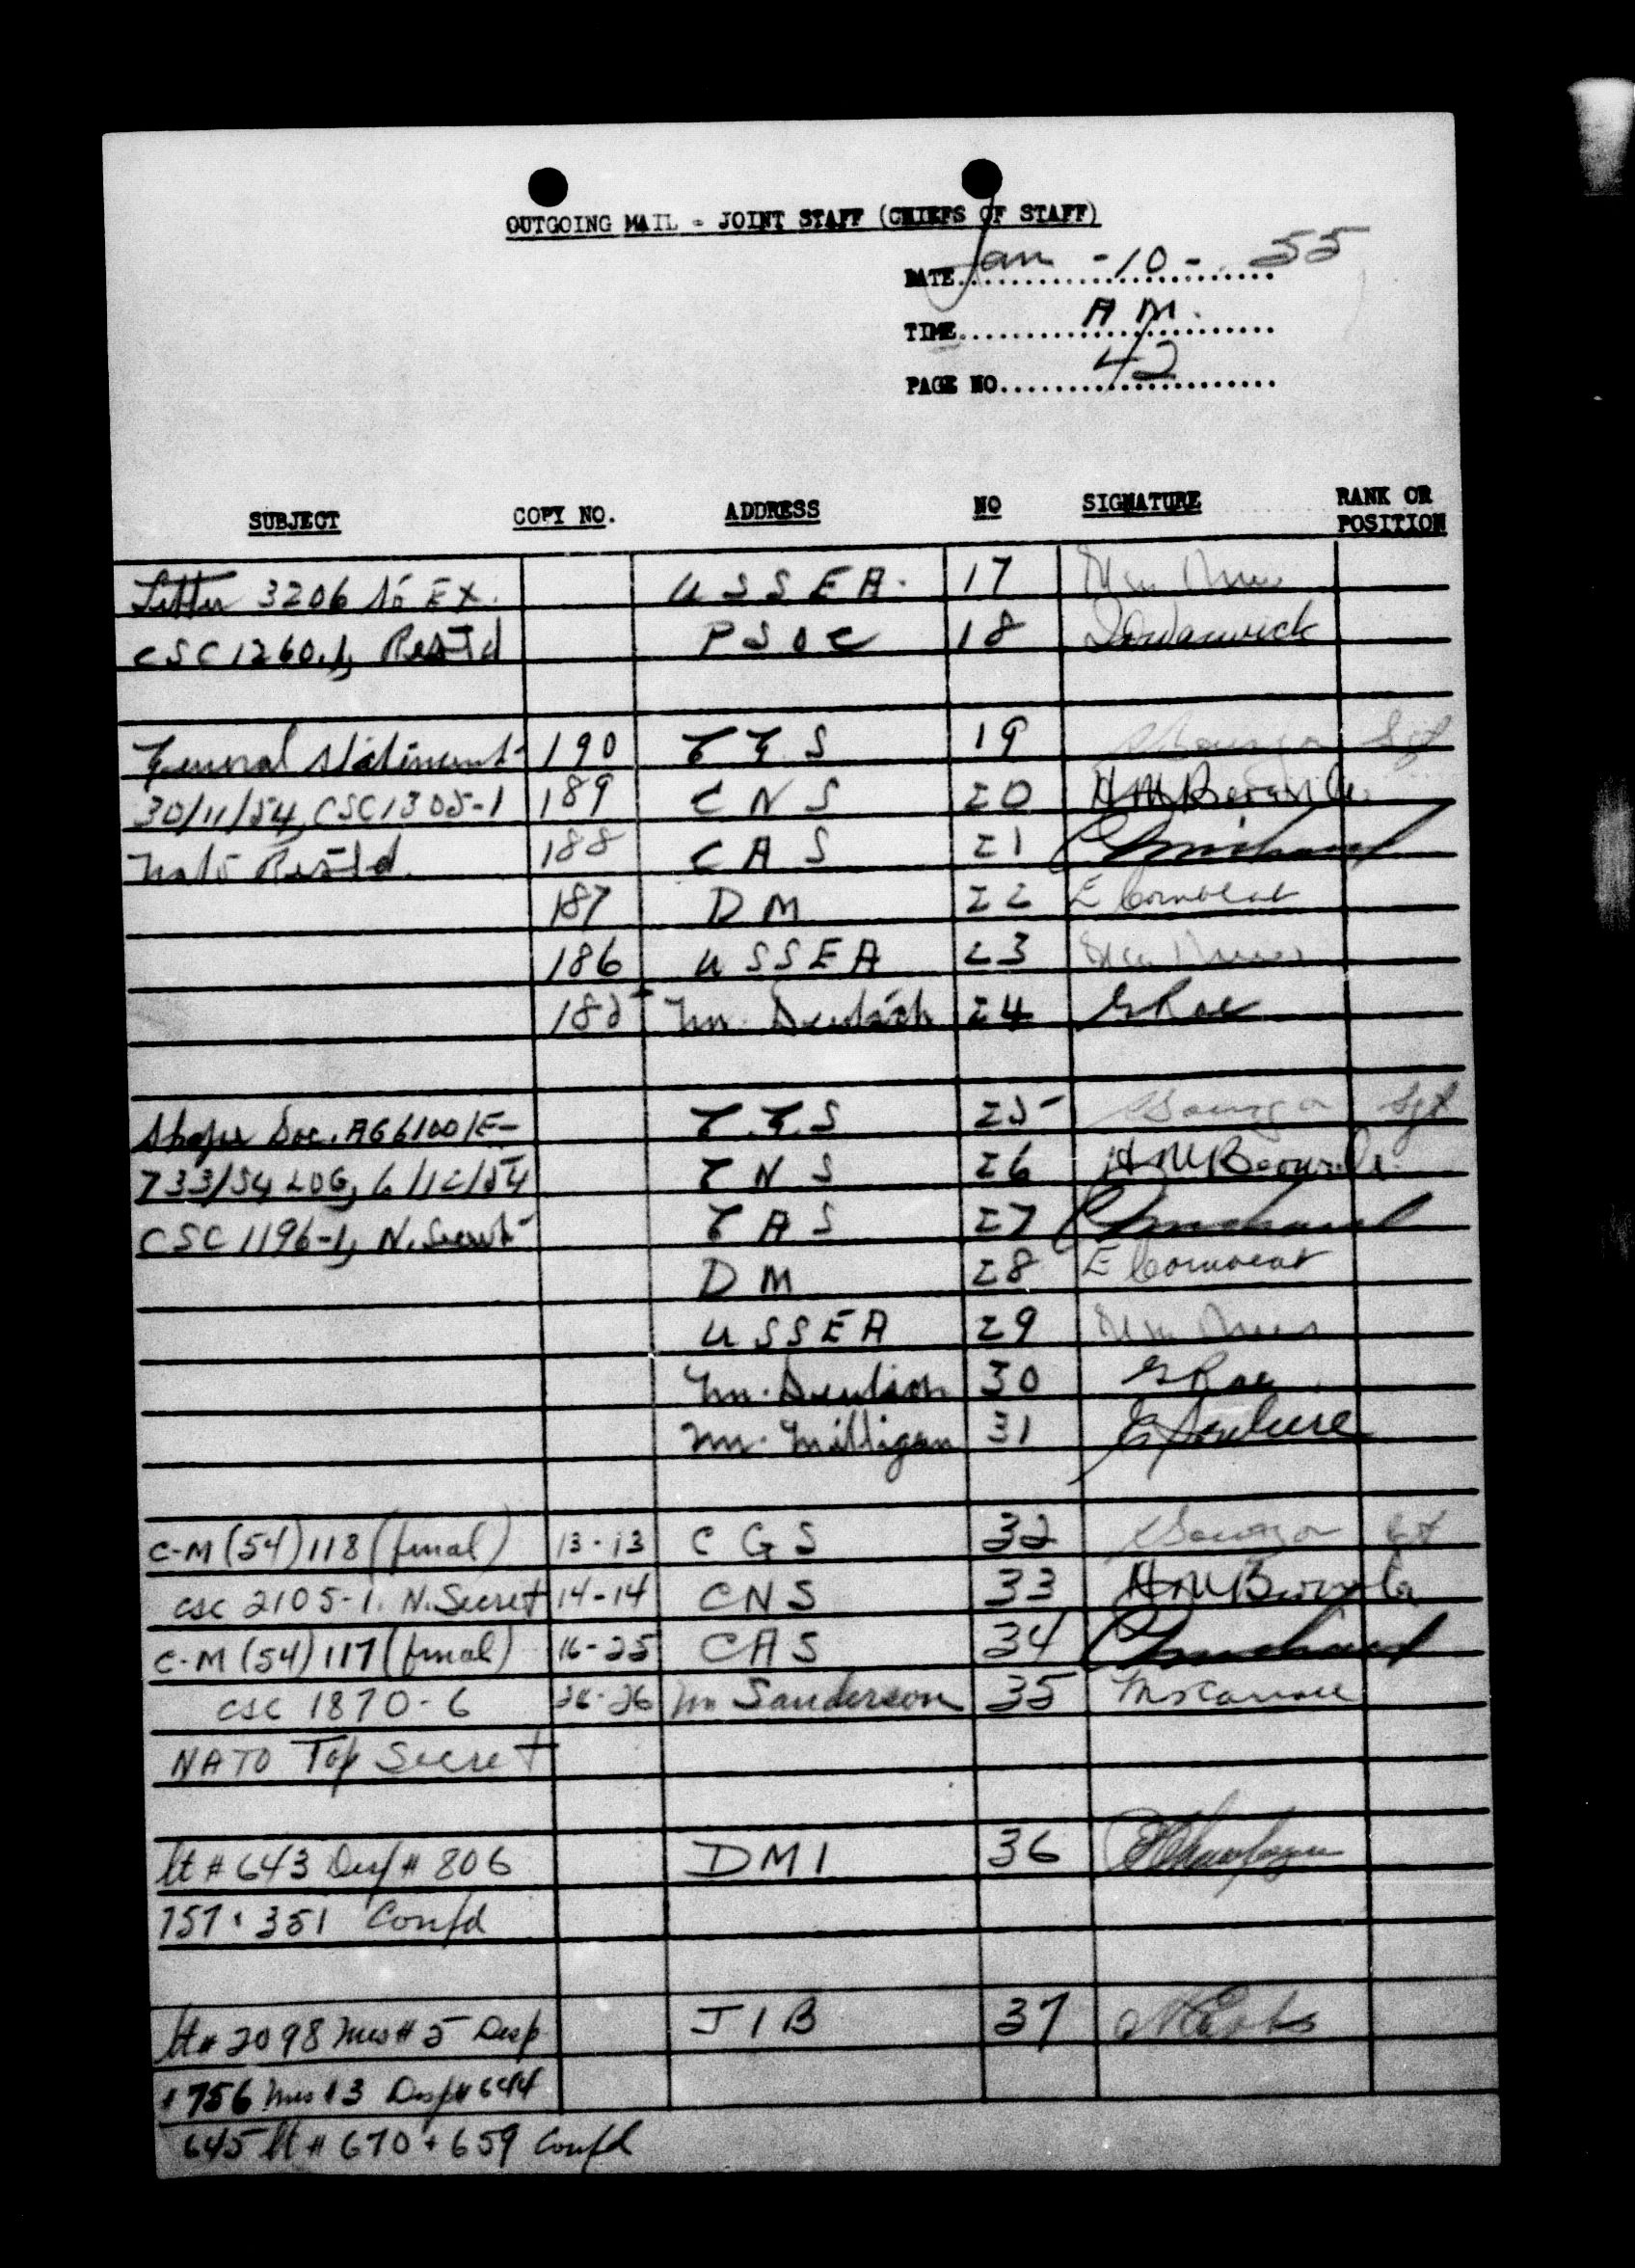 OUTGOING MAIL - JOINT STAFF (CHIEFS OF STAFF)
DATE Jan - 10 - 55
TIME A M.
PAGE NO 42
SUBJECT COPY NO. ADDRESS NO SIGNATURE RANK OR POSITION
Letter 3206 Ex. USSEA. 17
CSC 1260.1, Rest'd PSOC 18
General Statement 190 CGS 19 Sgt
30/11/54, CSC 1305-1 189 CNS 20
Nato Rest'd. 188 CAS 21
187 DM 22
186 USSEA 23
185 Mr. 24 G Rae
Shape Doc. AG6100/E- C.G.S 25 Sgt
733/54 LOG, 6/12/54 CNS 26
CSC 1196-1, N. Secret CAS 27
DM 28
USSEA 29
Mr. 30 G Rae
Mr. Milligan 31
C-M (54) 118 (final) 13-13 CGS 32
CSC 2105-1. N. Secret 14-14 CNS 33
C-M (54) 117 (final) 16-25 CAS 34
CSC 1870-6 26-26 Mr Sanderson 35
NATO Top Secret
lt # 643 Desp # 806 DMI 36
757 + 351 Confd
lt # 2098 Mes # 5 Desp JIB 37
# 756 Mes # 3 Desp # 644
645 lt # 670 + 659 Confd